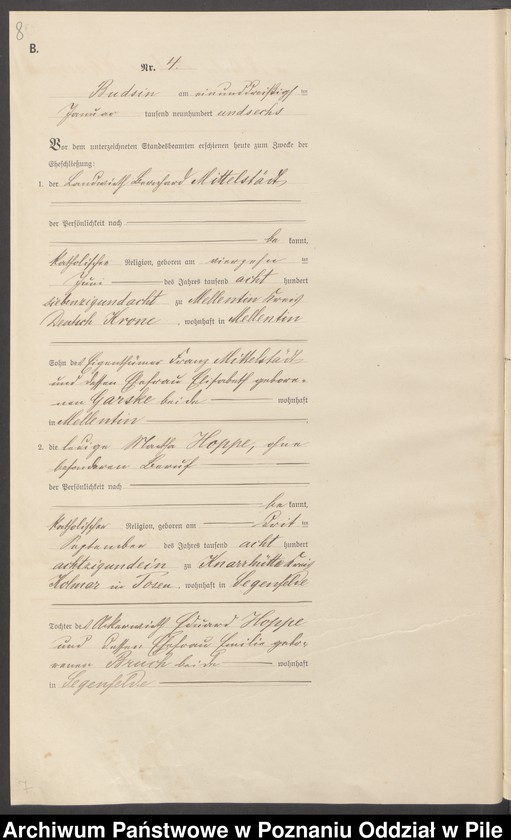 8
B.
Nr. 4.
Budsin am einunddreißig ten
Januar tausend neunhundert undsechs
Vor dem unterzeichneten Standesbeamten erschienen heute zum Zwecke der
Eheschließung:
1. der Landwirth Bernhard Mittelstädt
der Persönlichkeit nach
be kannt,
katholischer Religion, geboren am vierzehn ten
Juni des Jahres tausend acht hundert
siebenzigundacht zu Mellentin Kreis
Deutsch Krone, wohnhaft in Mellentin
Sohn des Eigenthümer Franz Mittelstädt
und dessen Ehefrau Elisabeth gebore-
nen Garske beide wohnhaft
in Mellentin
2. die ledige Martha Hoppe, ohne
besonderen Beruf
der Persönlichkeit nach
be kannt,
katholischer Religion, geboren am drit ten
September des Jahres tausend acht hundert
achtzigundein zu Knarrhütte Kreis
Kolmar in Posen, wohnhaft in Segenfelde
Tochter des Ackerwirth Eduard Hoppe
und dessen Ehefrau Emilie gebo-
renen Bruch beide wohnhaft
in Segenfelde
7
Archiwum Państwowe w Poznaniu Oddział w Pile